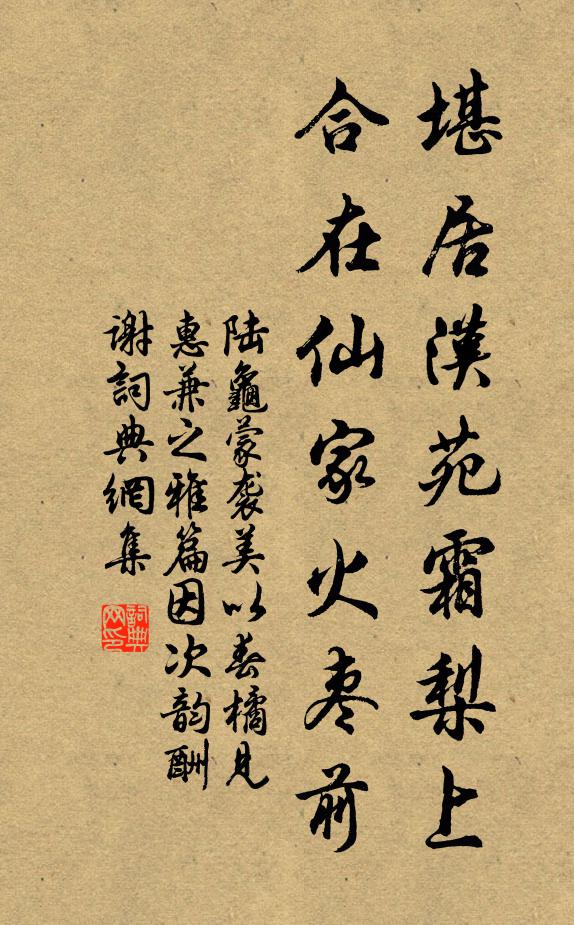 堪居漢苑霜梨上
合在仙家火枣前
陆龜蒙袭美以春橘見
惠兼之雅篇因次韵酬
谢詞典網集
詞典网印